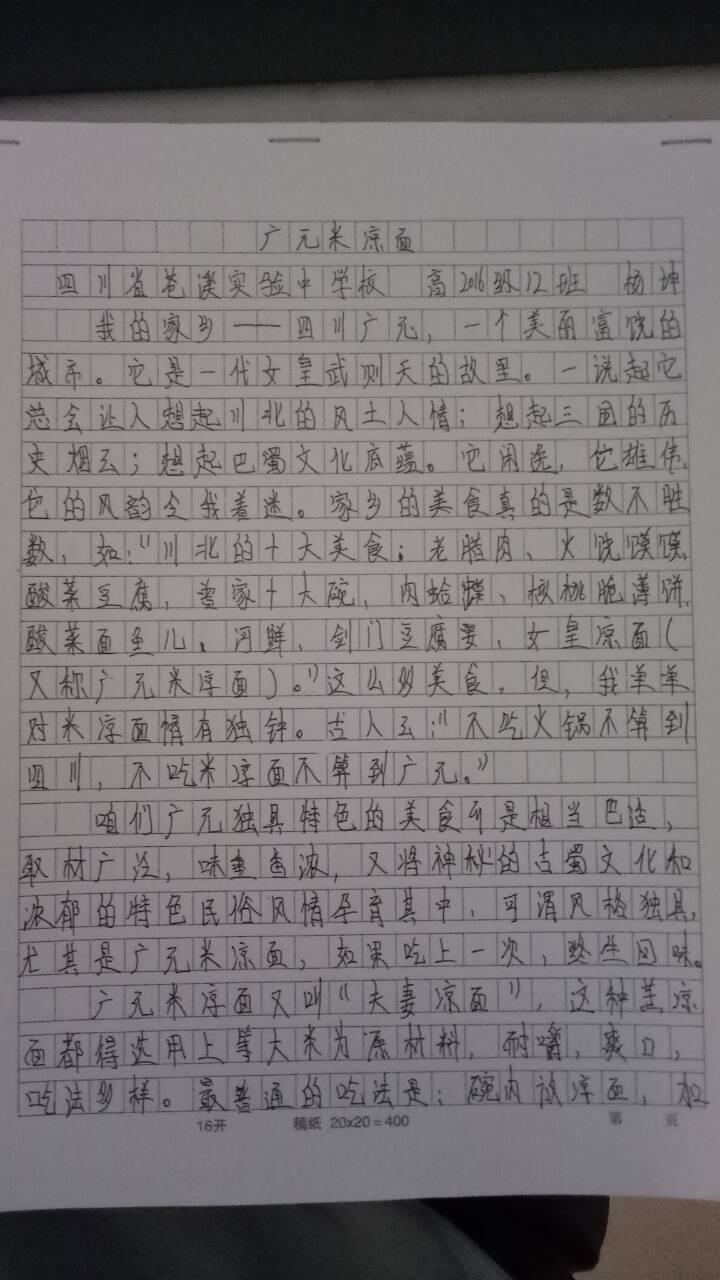 广元米凉面
四川省苍溪实验中学校 高2016级12班 杨坤
我的家乡——四川广元，一个美丽富饶的
城市。它是一代女皇武则天的故里。一说起它
总会让人想起川北的风土人情；想起三国的历
史烟云；想起巴蜀文化底蕴。它闲逸，它雄伟，
它的风韵令我着迷。家乡的美食真的是数不胜
数，如：“川北的十大美食：老腊肉、火烧馍馍，
酸菜豆腐，曾家十大碗，肉蛤蟆、核桃脆薄饼，
酸菜面鱼儿、河鲜、剑门豆腐宴，女皇凉面（
又称广元米凉面）。”这么多美食，但，我单单
对米凉面情有独钟。古人云：“不吃火锅不算到
四川，不吃米凉面不算到广元。”
咱们广元独具特色的美食可是相当巴适，
取材广泛，味重香浓，又将神秘的古蜀文化和
浓郁的特色民俗风情孕育其中，可谓风格独具，
尤其是广元米凉面，如果吃上一次，终生回味。
广元米凉面又叫“夫妻凉面”，这种蒸凉
面都得选用上等大米为原材料，耐嚼，爽口，
吃法多样。最普通的吃法是：碗内放凉面，加
16开 稿纸 20x20=400 第 页